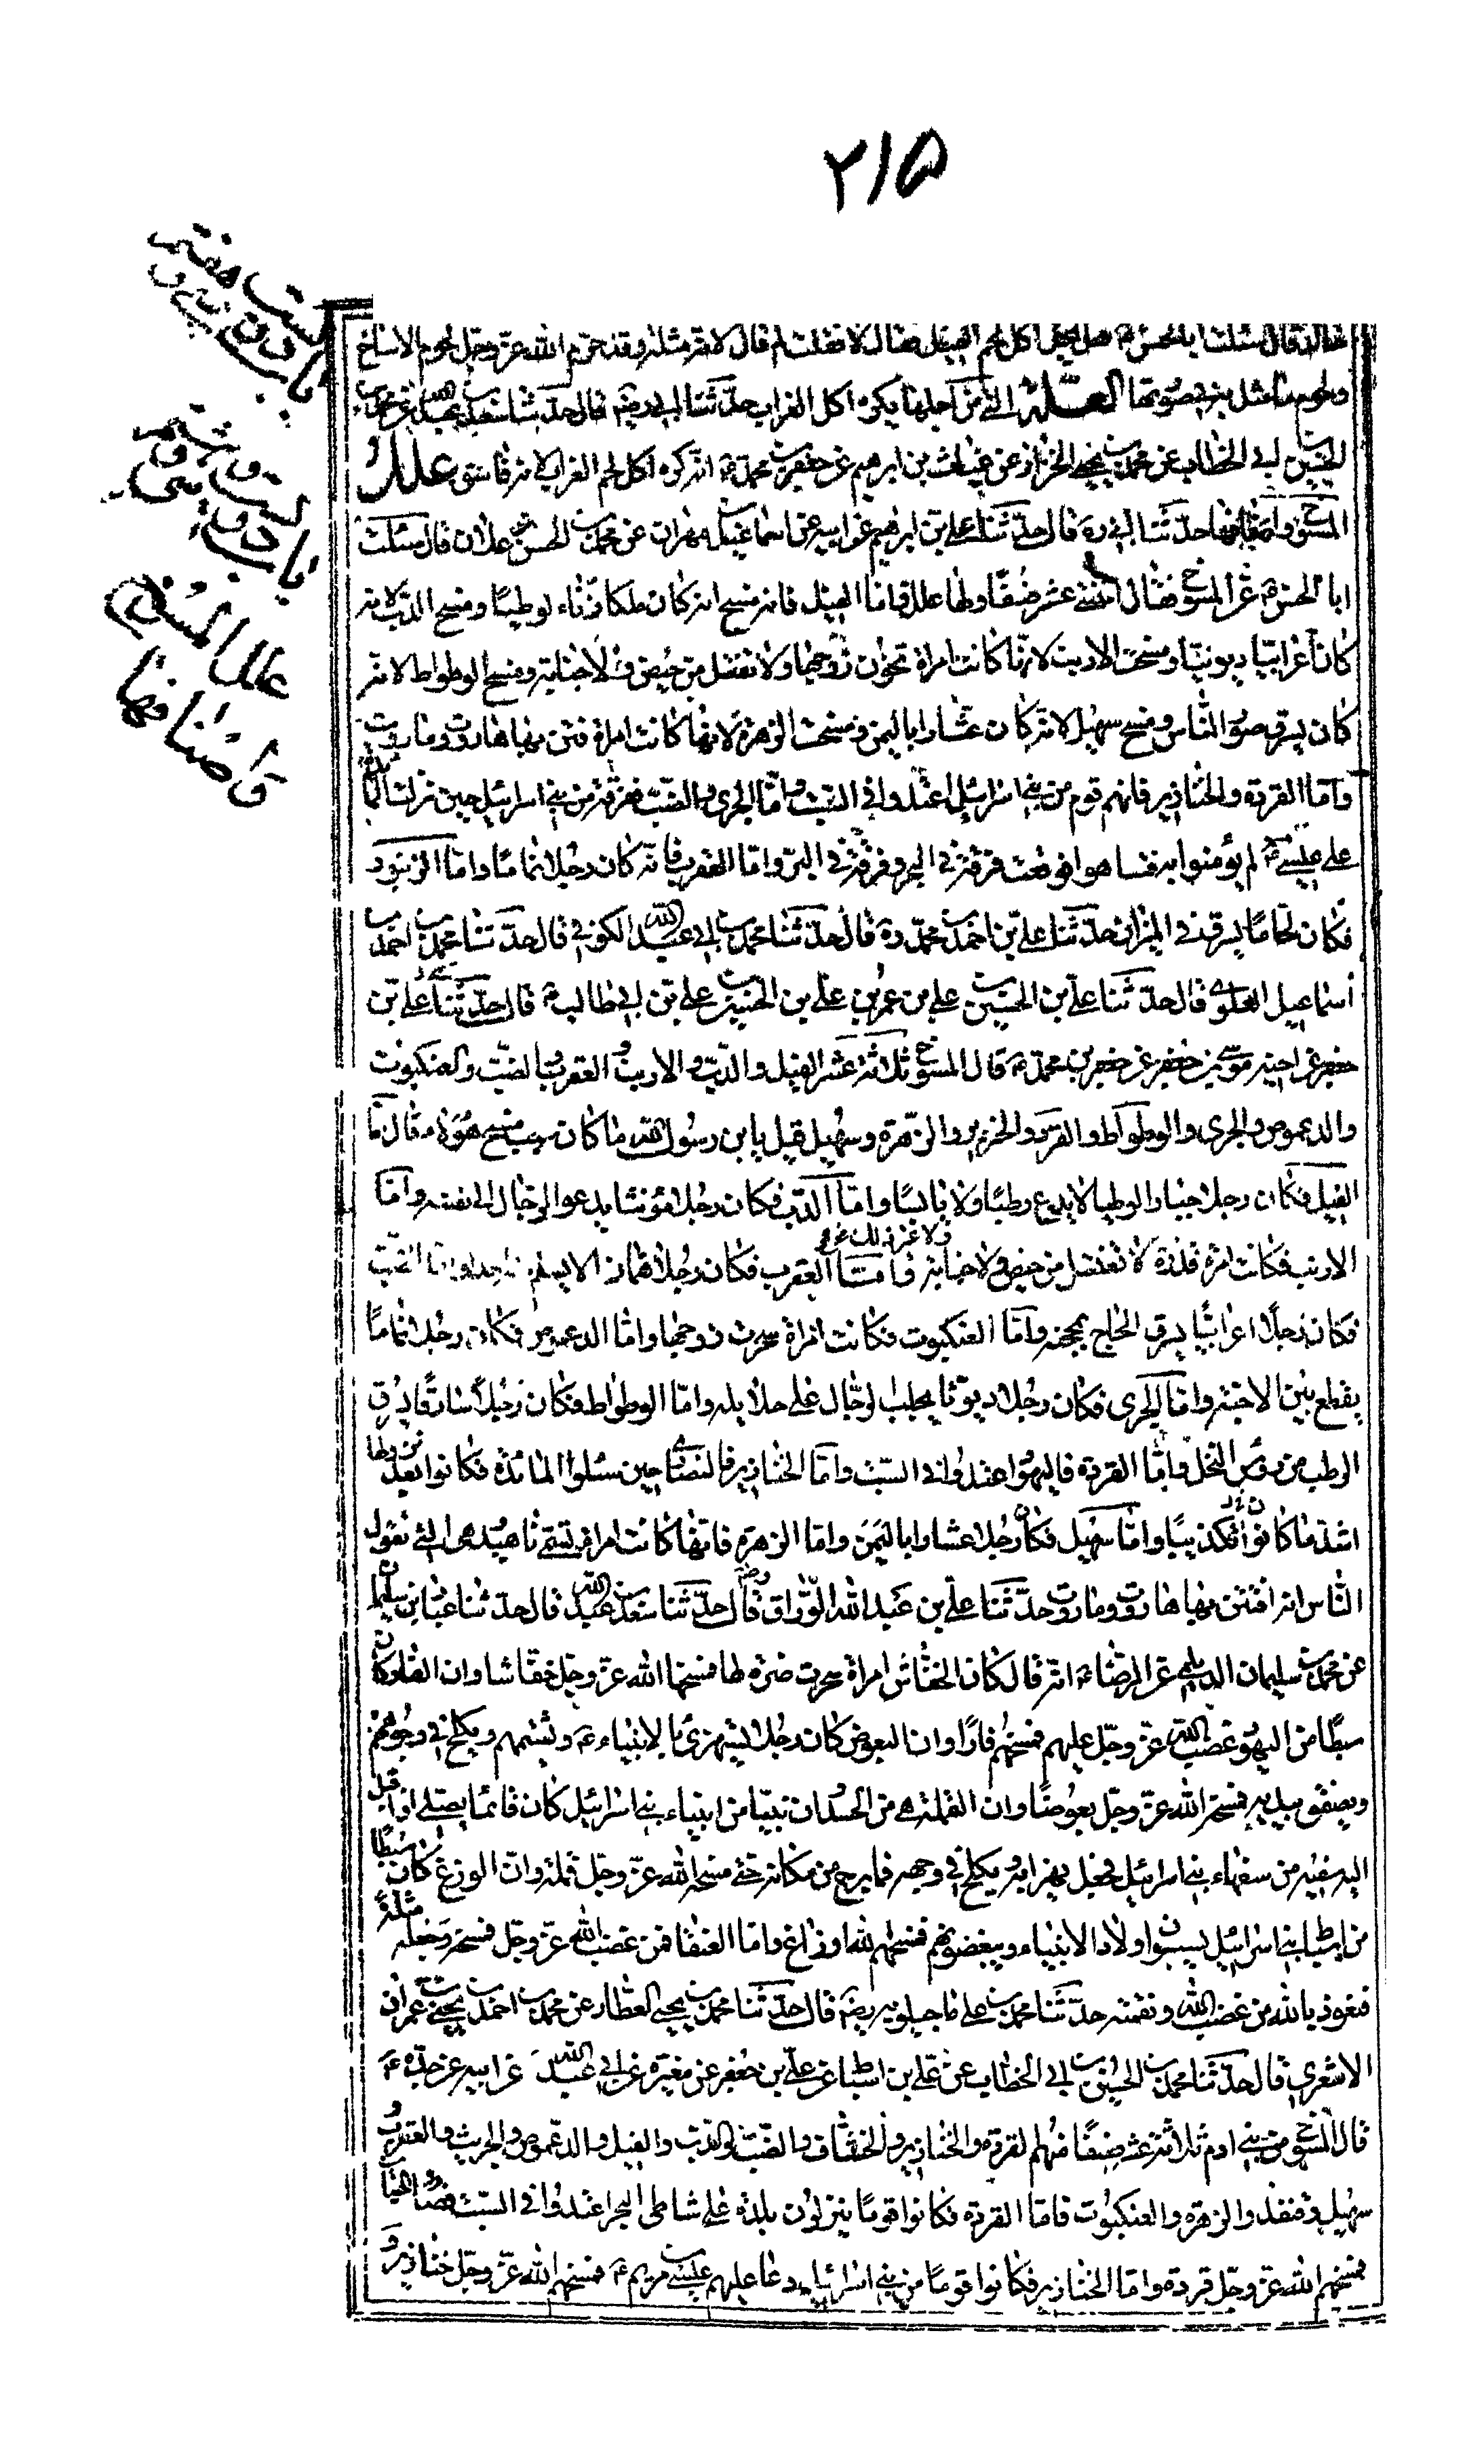 ٢١٥
باب دويست هفتم
باب دويست و
علل المسوخ
واصنافها
خالد قال سئلت ابا الحسن ع هل يحل اكل لحم الفيل فقال لا فقلت لم قال لانه مثلة وقد حرم الله عز وجل لحوم الامساخ
ولحوم ما مثل به في صورتها العلة التي من اجلها يكره اكل الغراب حدثنا ابي رضه قال حدثنا سعد بن عبد الله عن محمد بن
الحسين بن ابي الخطاب عن محمد بن يحيى الخزاز عن غياث بن ابرهيم عن جعفر بن محمد ع انه كره اكل لحم الغراب لانه فاسق علل
المسوخ واصنافها حدثنا ابي ره قال حدثنا علي بن ابرهيم عن ابيه عن اسماعيل بن مهران عن محمد بن الحسن بن علان قال سئلت
ابا الحسن ع عن المسوخ فقال اثنى عشر صنفا ولها علل فاما الفيل فانه مسخ انه كان ملكا زناء لوطيا ومسخ الدب لانه
كان اعرابيا ديوثا ومسخت الارنب لانها كانت امراة تخون زوجها ولا تغتسل من حيض ولا جنابة ومسخ الوطواط لانه
كان يسرق تمور الناس ومسخ سهيل لانه كان عشارا باليمن ومسخت الزهرة لانها كانت امراة فتن بها هاروت وماروت
واما القردة والخنازير فانهم قوم من بني اسرائيل اعتدوا في السبت واما الجري والضب ففرقة من بني اسرائيل حين نزلت المائدة
على عيسى ع لم يؤمنوا به فتاهوا فوقعت فرقة في البحر وفرقة في البر واما العقرب فانه كان رجلا نماما واما الزنبور
فكان لحاما يسرق في الميزان حدثنا علي بن احمد بن محمد ره قال حدثنا محمد بن ابي عبد الله الكوفي قال حدثنا محمد بن احمد بن
اسماعيل العلوي قال حدثنا علي بن الحسين بن علي بن عمر بن علي بن الحسين بن علي بن ابي طالب ع قال حدثنا علي بن
جعفر عن اخيه موسى بن جعفر عن جعفر بن محمد ع قال المسوخ ثلاثة عشر الفيل والدب والارنب والعقرب والضب والعنكبوت
والدعموص والجري والوطواط والقرد والخنزير والزهرة وسهيل قيل يا بن رسول الله ما كان سبب مسخ هؤلاء قال اما
الفيل فكان رجلا جبارا لوطيا لا يدع رطبا ولا يابسا واما الدب فكان رجلا مؤنثا يدعو الرجال الى نفسه واما
الارنب فكانت امرة قذرة لا تغتسل من حيض ولا جنابة ولا غير ذلك واما العقرب فكان رجلا همازا لا يسلم منه احد واما الضب
فكان رجلا اعرابيا يسرق الحاج بمحجنه واما العنكبوت فكانت امراة سحرت زوجها واما الدعموص فكان رجلا نماما
يقطع بين الاحبة واما الجري فكان رجلا ديوثا يجلب الرجال على حلائله واما الوطواط فكان رجلا سارقا يسرق
الرطب من رؤس النخل واما القردة فاليهود اعتدوا في السبت واما الخنازير فالنصارى حين سئلوا المائدة فكانوا بعد نزولها
اشد ما كانوا تكذيبا واما سهيل فكان رجلا عشارا باليمن واما الزهرة فانها كانت امراة تسمى ناهيد هي التي تقول
الناس انه افتتن بها هاروت وماروت حدثنا علي بن عبد الله الوراق رضه قال حدثنا سعد بن عبد الله قال حدثنا عباد بن سليمان
عن محمد بن سليمان الديلمي عن الرضا ع انه قال كان الخفاش امراة سحرت ضرة لها فمسخها الله عز وجل خفاشا وان الفار كان
سبطا من اليهود غضب الله عز وجل عليهم فمسخهم فارا وان البعوض كان رجلا يستهزئ بالانبياء ع ويشتمهم ويكلح في وجوههم
ويصفق بيديه فمسخه الله عز وجل بعوضا وان القملة هي من الجسد ان نبيا من انبياء بني اسرائيل كان قائما يصلي اذ اقبل
اليه سفيه من سفهاء بني اسرائيل فجعل يهزا به ويكلح في وجهه فما برح من مكانه حتى مسخه الله عز وجل قملة وان الوزغ كان سبطا
من اسباط بني اسرائيل يسبون اولاد الانبياء ويبغضونهم فمسخهم الله اوزاغا واما العنقا فمن غضب الله عز وجل فمسخه وجعله مثلة
فنعوذ بالله من غضب الله ونقمته حدثنا محمد بن علي ماجيلويه رضه قال حدثنا محمد بن يحيى العطار عن محمد بن احمد بن يحيى بن عمران
الاشعري قال حدثنا محمد بن الحسين بن ابي الخطاب عن علي بن اسباط عن علي بن جعفر عن مغيرة عن ابي عبد الله عن ابيه عن جده ع
قال المسوخ من بني ادم ثلاثة عشر صنفا منهم القردة والخنازير والخفاش والضب والدب والفيل والدعموص والجريث والعقرب و
سهيل وقنفذ والزهرة والعنكبوت فاما القردة فكانوا قوما ينزلون بلدة على شاطئ البحر اعتدوا في السبت فصادوا الحيتان
فمسخهم الله عز وجل قردة واما الخنازير فكانوا قوما من بني اسرائيل دعا عليهم عيسى بن مريم ع فمسخهم الله عز وجل خنازير و